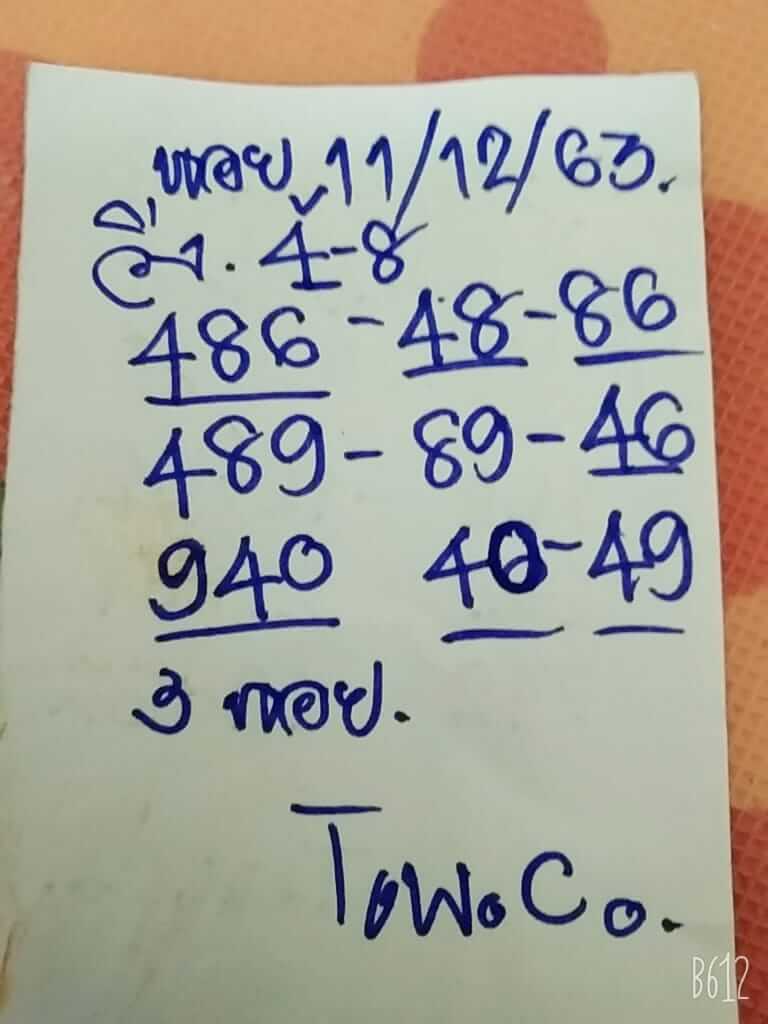 หอย 11/12/63.
วิ่ง. 4-8
486 - 48 - 86
489 - 89 - 46
940 40 - 49
3 หอย.
B612